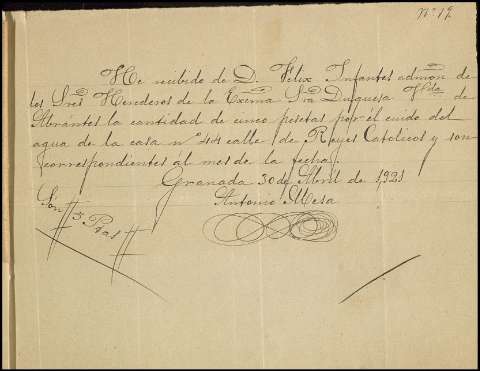 Nº 19
He recibido de D. Felix Infantes admon de
los Sres Herederos de la Exema Sra Duquesa Vda de
Abrantes la cantidad de cinco pesetas por el cuido del
agua de la casa nº 44 calle de Reyes Catolicos y son
correspondientes al mes de la fecha.
Granada 30 de Abril de 1921
Son 5 Ptas
Antonio Mesa